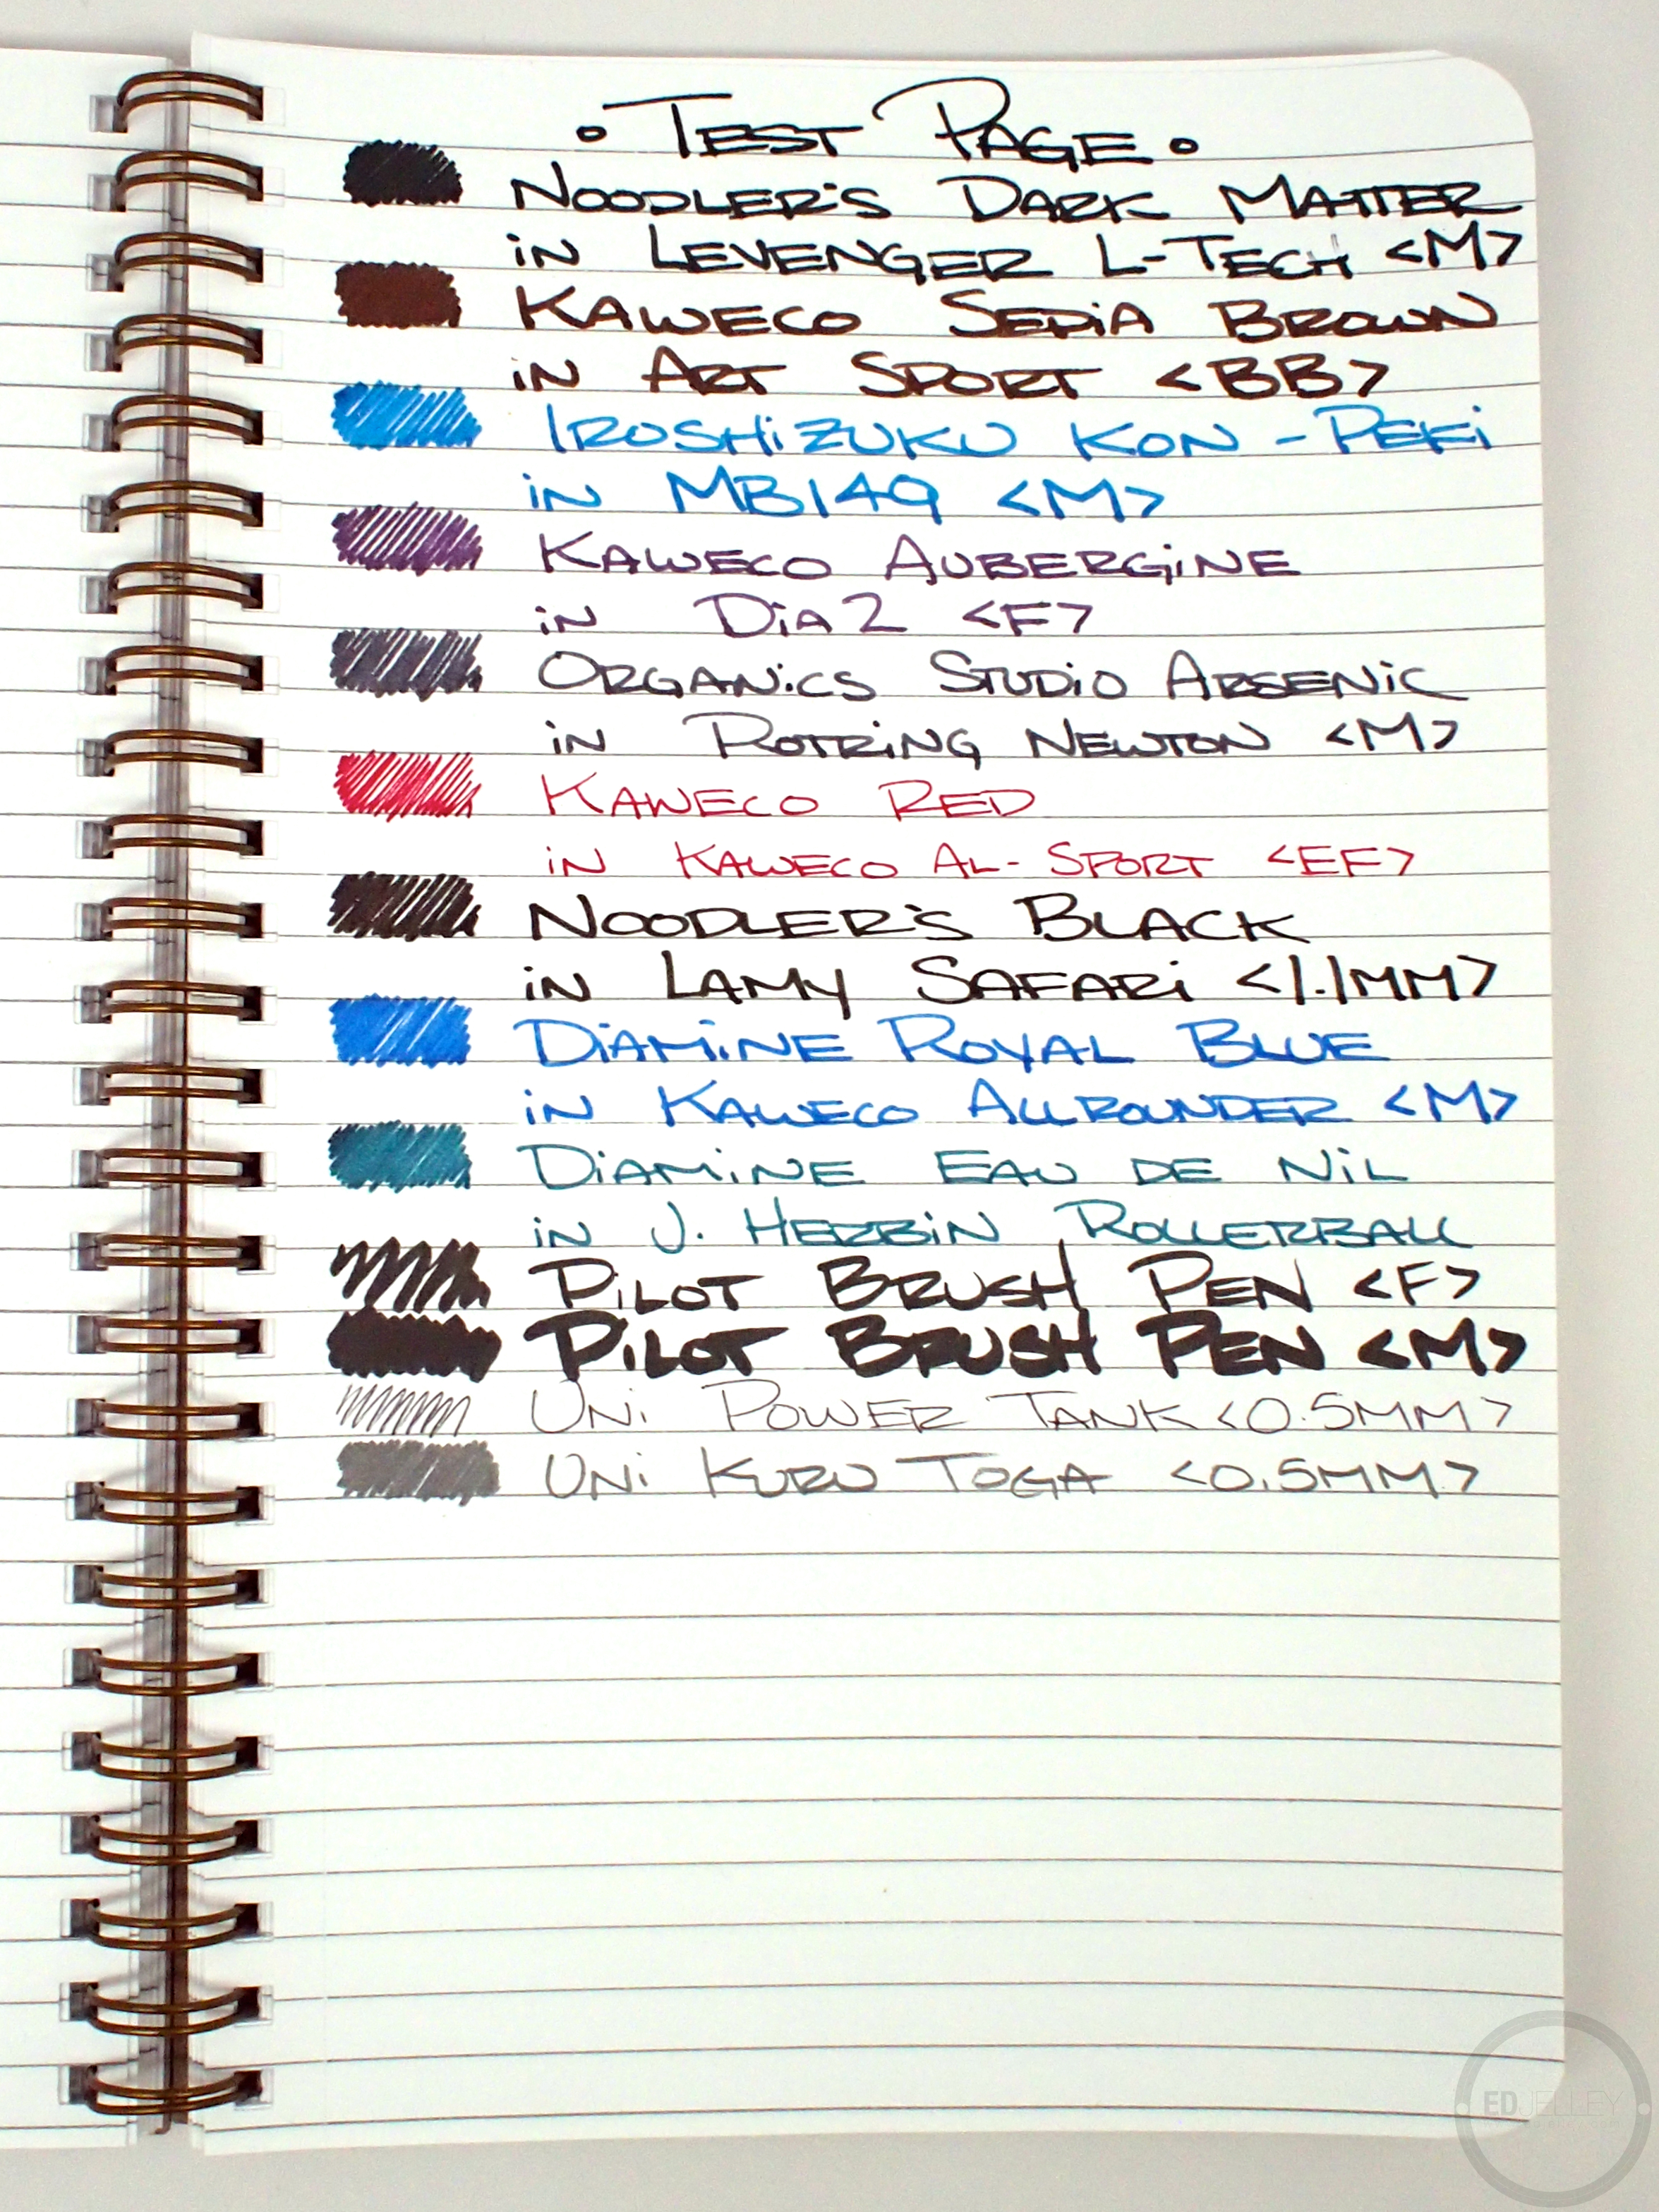 • TEST PAGE •
NOODLER'S DARK MATTER
iN LEVENGER L-TECH <M>
KAWECO SEPiA BROWN
iN ART SPORT <BB>
IROSHiZUKU KON-PEKi
iN MB149 <M>
KAWECO AUBERGiNE
iN DiA2 <F>
ORGANiCS STUDiO ARSENiC
iN ROTRiNG NEWTON <M>
KAWECO RED
iN KAWECO AL-SPORT <EF>
NOODLER'S BLACK
iN LAMY SAFARi <1.1MM>
DiAMiNE ROYAL BLUE
iN KAWECO ALLROUNDER <M>
DiAMiNE EAU DE NiL
iN J. HERBiN ROLLERBALL
PiLOT BRUSH PEN <F>
PiLOT BRUSH PEN <M>
UNi POWER TANK <0.5MM>
UNi KURU TOGA <0.5MM>
EDJELLEY